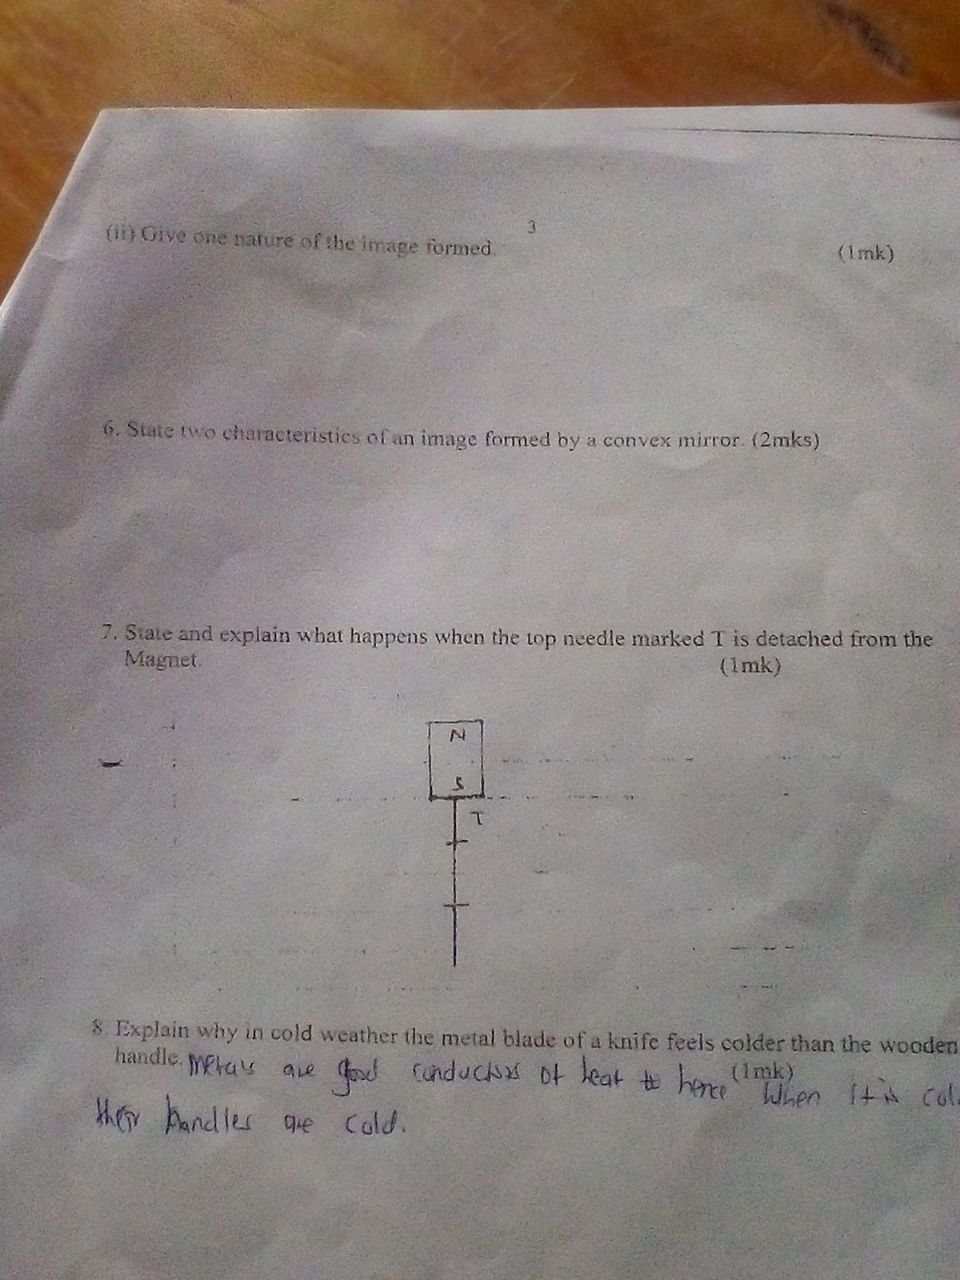 3
(ii) Give one nature of the image formed. (1mk)
6. State two characteristics of an image formed by a convex mirror. (2mks)
7. State and explain what happens when the top needle marked T is detached from the
Magnet. (1mk)
N
S
T
8. Explain why in cold weather the metal blade of a knife feels colder than the wooden
handle. (1mk)
Metals are good conductors of heat hence when it is
their handles are cold.